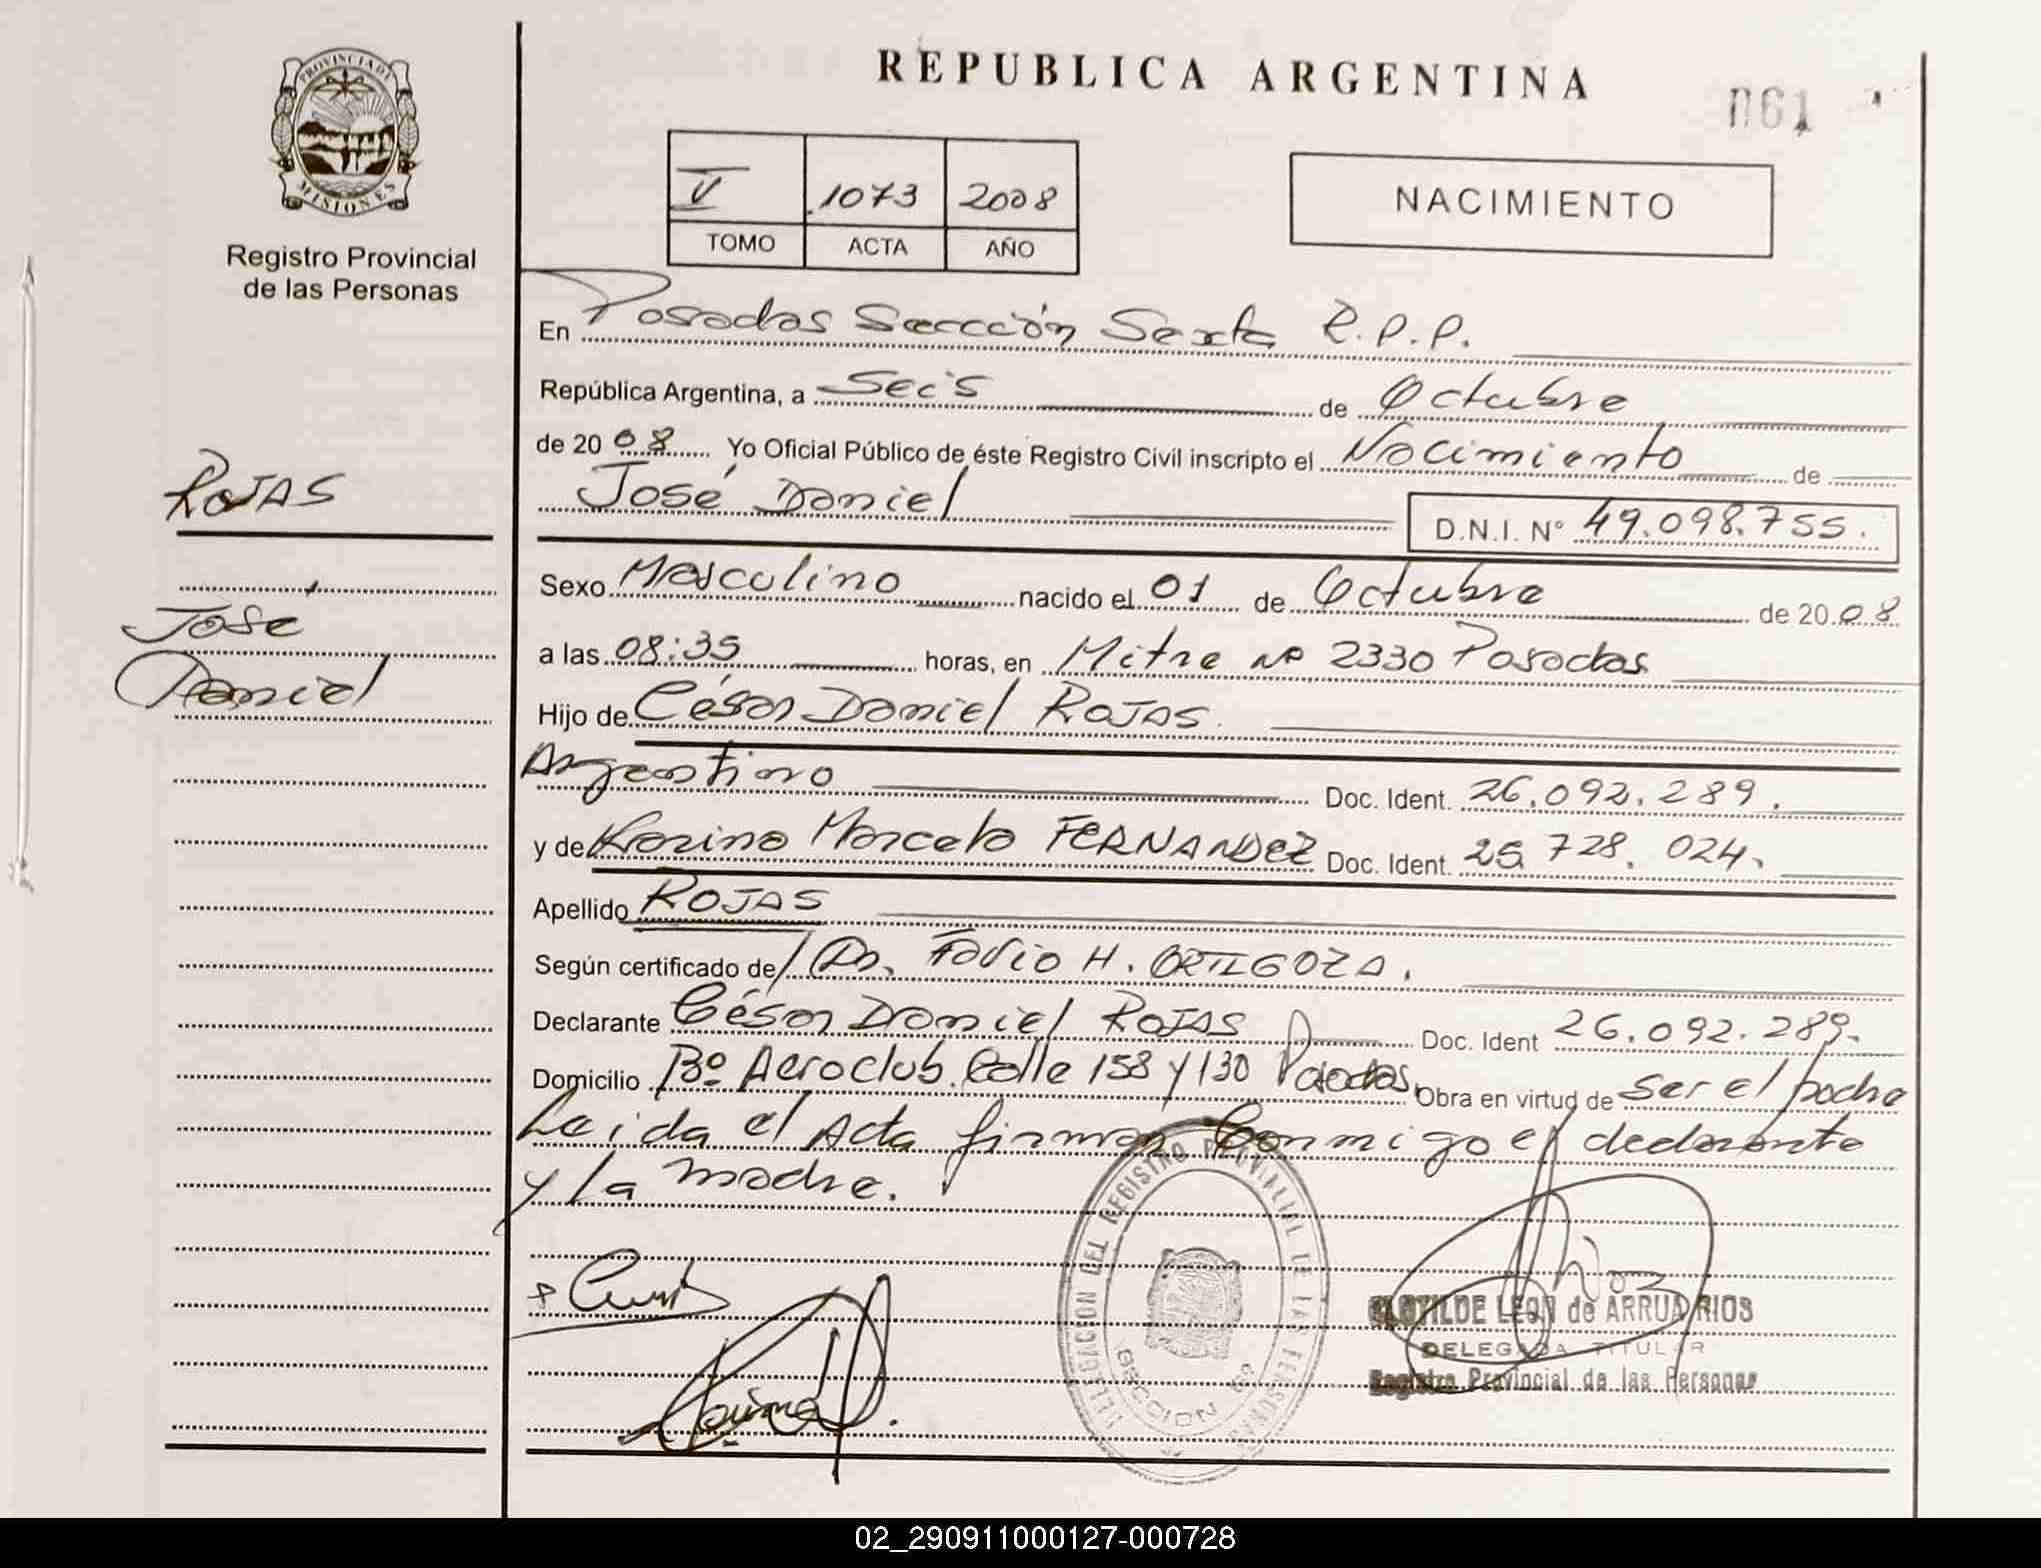 PROVINCIA DE
MISIONES
Registro Provincial
de las Personas
ROJAS
José
Daniel
REPUBLICA ARGENTINA
061
V 1073 2008
TOMO ACTA AÑO
NACIMIENTO
En Posadas Sección Sexta R.P.P.
República Argentina, a Seis de Octubre
de 2008 Yo Oficial Público de éste Registro Civil inscripto el Nacimiento de
José Daniel D.N.I. Nº 49.098.755.
Sexo Masculino nacido el 01 de Octubre de 2008
a las 08:35 horas, en Mitre nº 2330 Posadas
Hijo de César Daniel ROJAS.
Argentino Doc. Ident. 26.092.289.
y de Karina Marcela FERNANDEZ Doc. Ident. 25.728.024.
Apellido ROJAS
Según certificado de/ Dr. Favio H. ORTIGOZA.
Declarante César Daniel ROJAS Doc. Ident 26.092.289.
Domicilio Bº Aeroclub. Calle 158 y 130 Posadas, Obra en virtud de ser el padre
Leida el Acta firman conmigo el declarante
y la madre.
DELEGACION DEL REGISTRO PROVINCIAL DE LAS PERSONAS
SECCION 6ª
CLOTILDE LEON de ARRUA RIOS
DELEGADA TITULAR
Registro Provincial de las Personas
02_290911000127-000728